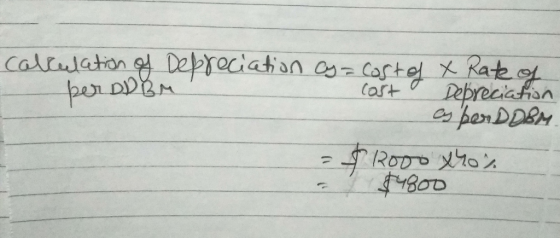 Calculation of Depreciation as = Cost of × Rate of
per DDBM cost Depreciation
as per DDBM
= $ 12000 × 40%
= $4800